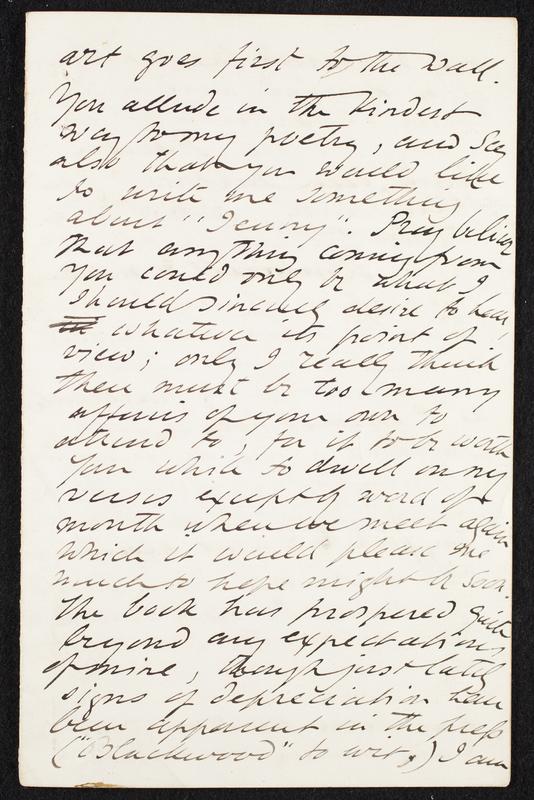 art goes first to the wall.
You allude in the kindest
way to my poetry, and say
also that you would like
to write me something
about "Jenny". Pray believe
that anything coming from
you could only be what I
should sincerely desire to hear
whatever its point of
view; only I really think
there must be too many
affairs of your own to
attend to, for it to be worth
your while to dwell on my
verses except by word of
mouth when we meet again
which it would please me
much to hope might be soon.
The book has prospered quite
beyond any expectations
of mine, though just lately
signs of depreciation have
been apparent in the press
("Blackwood" to wit,) I am